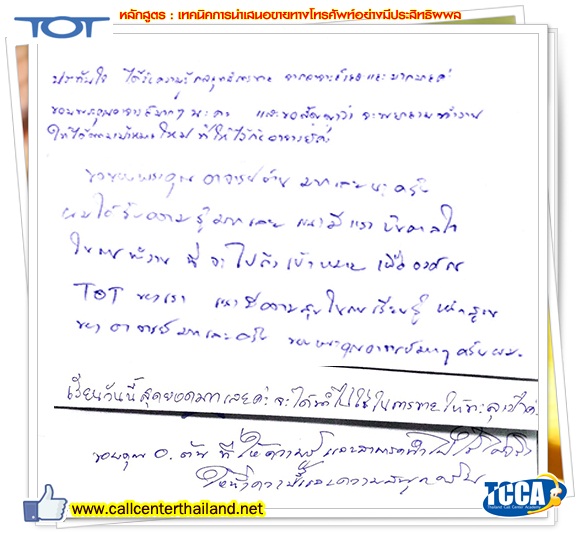 TOT หลักสูตร : เทคนิคการนำเสนอขายทางโทรศัพท์อย่างมีประสิทธิพผล
ประทับใจ ได้รับความรู้ จากอาจารย์ และมากมายค่ะ
ขอบพระคุณอาจารย์มากๆ นะคะ และขอสัญญาว่า จะพยายามทำงาน
ให้ได้ตามเป้าหมายใหม่ ที่ให้ไว้กับอาจารย์ค่ะ
ขอขอบพระคุณ อาจารย์ มากเลยนะครับ
ผมได้รับความรู้มากเลย และมีแรงบันดาลใจ
ในการทำงาน ที่จะไปถึงเป้าหมาย เพื่อองค์กร
TOT ของเรา และมีความสุขในการเรียนรู้ หลักสูตร
ของ อาจารย์มากเลยครับ ขอบพระคุณอาจารย์มากๆ ครับผม.
เรียนวันนี้สุดยอดมากเลยค่ะ จะได้นำไปใช้ในการขายให้ทะลุเป้าค่ะ
ขอบคุณ อ. ต้น ที่ให้ความรู้ และสามารถนำไปใช้ได้จริง
ให้ทั้งความรู้และความสนุกครับ
www.callcenterthailand.net
TCCA
Thailand Call Center Academy